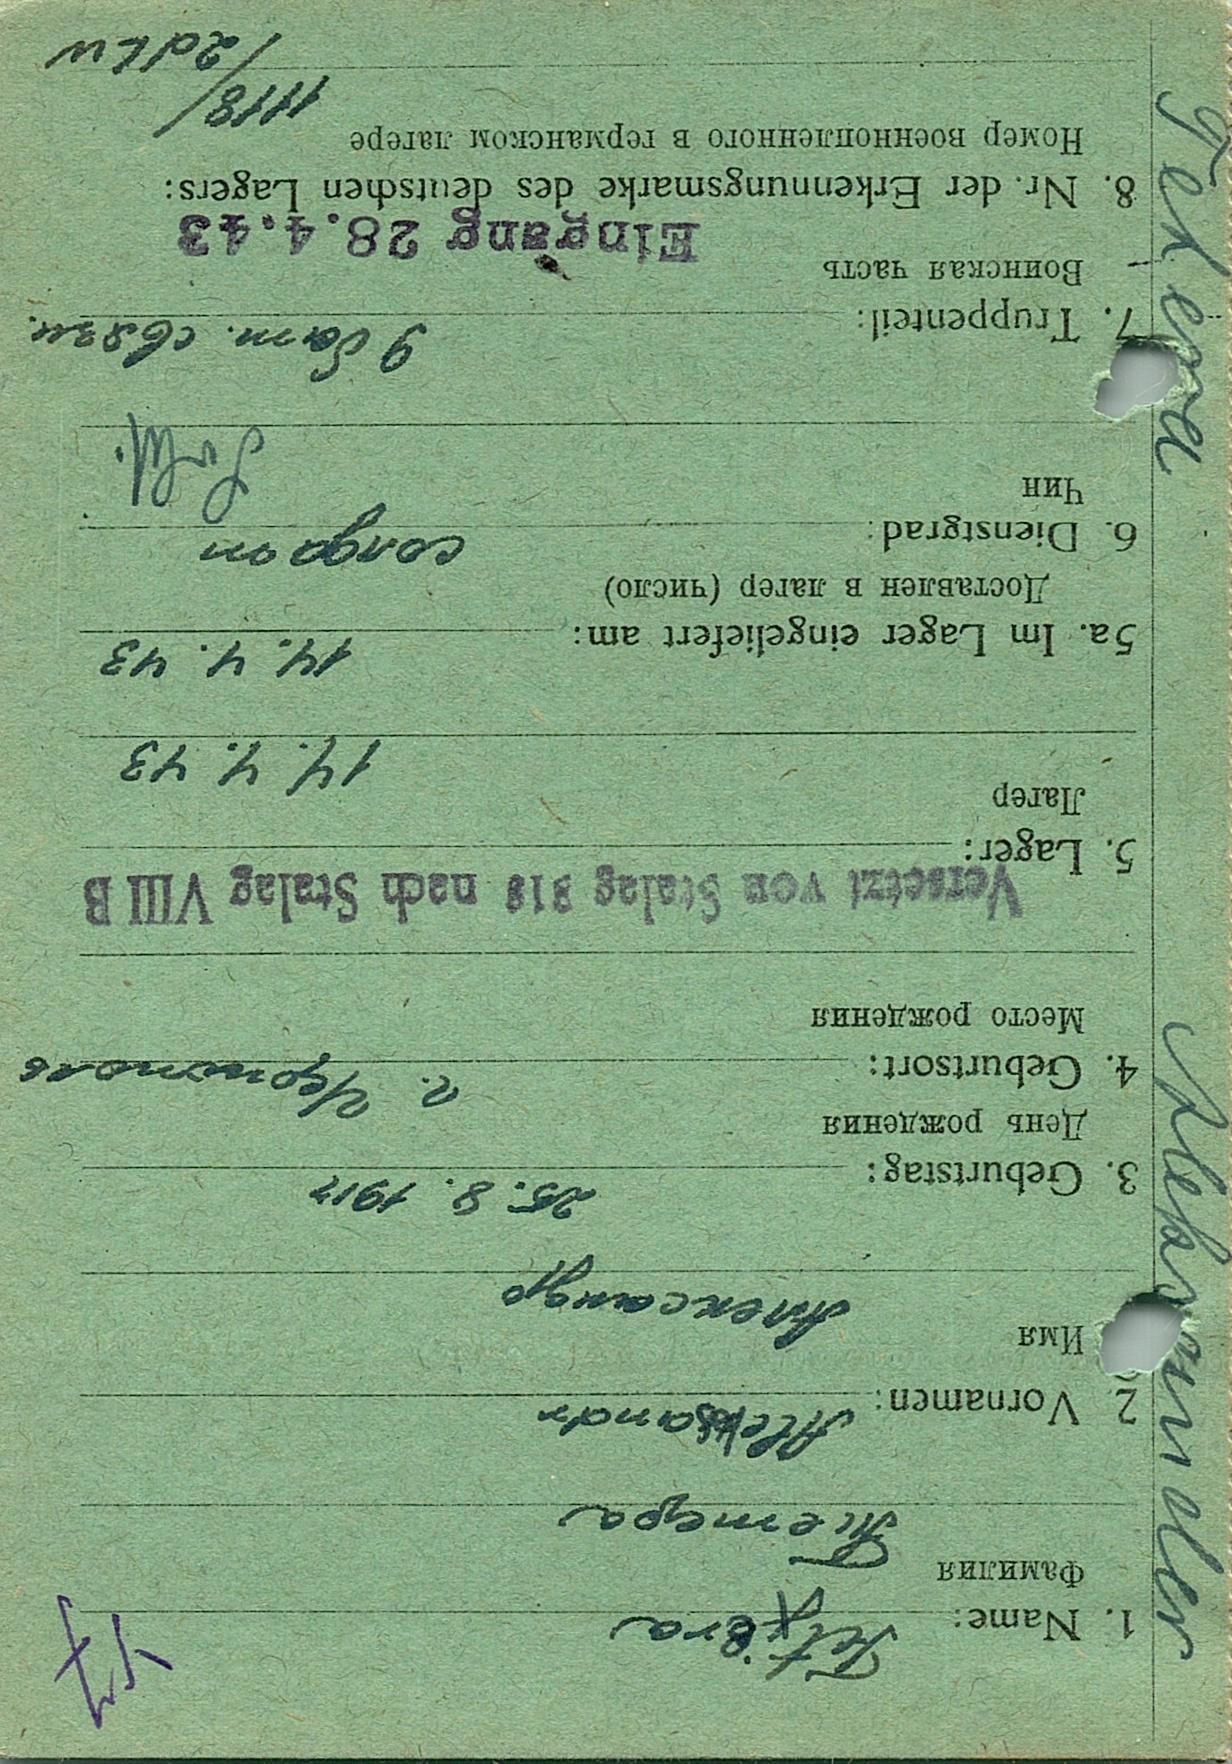 1. Name:
Фамилия Тетера
2. Vornamen: Aleksandr
Имя Александр
3. Geburtstag: 25. 8. 1917
День рождения
4. Geburtsort: г.
Место рождения
Versetzt von Stalag 318 nach Stalag VIII B
5. Lager:
Лагер
14. 4. 43
5a. Im Lager eingeliefert am: 14. 4. 43
Доставлен в лагер (число)
6. Dienstgrad: солдат
Чин
7. Truppenteil: 9 бат. связи.
Воинская часть
Eingang 28.4.43
8. Nr. der Erkennungsmarke des deutschen Lagers:
Номер военнопленного в германском лагере
1118/
Aleksander